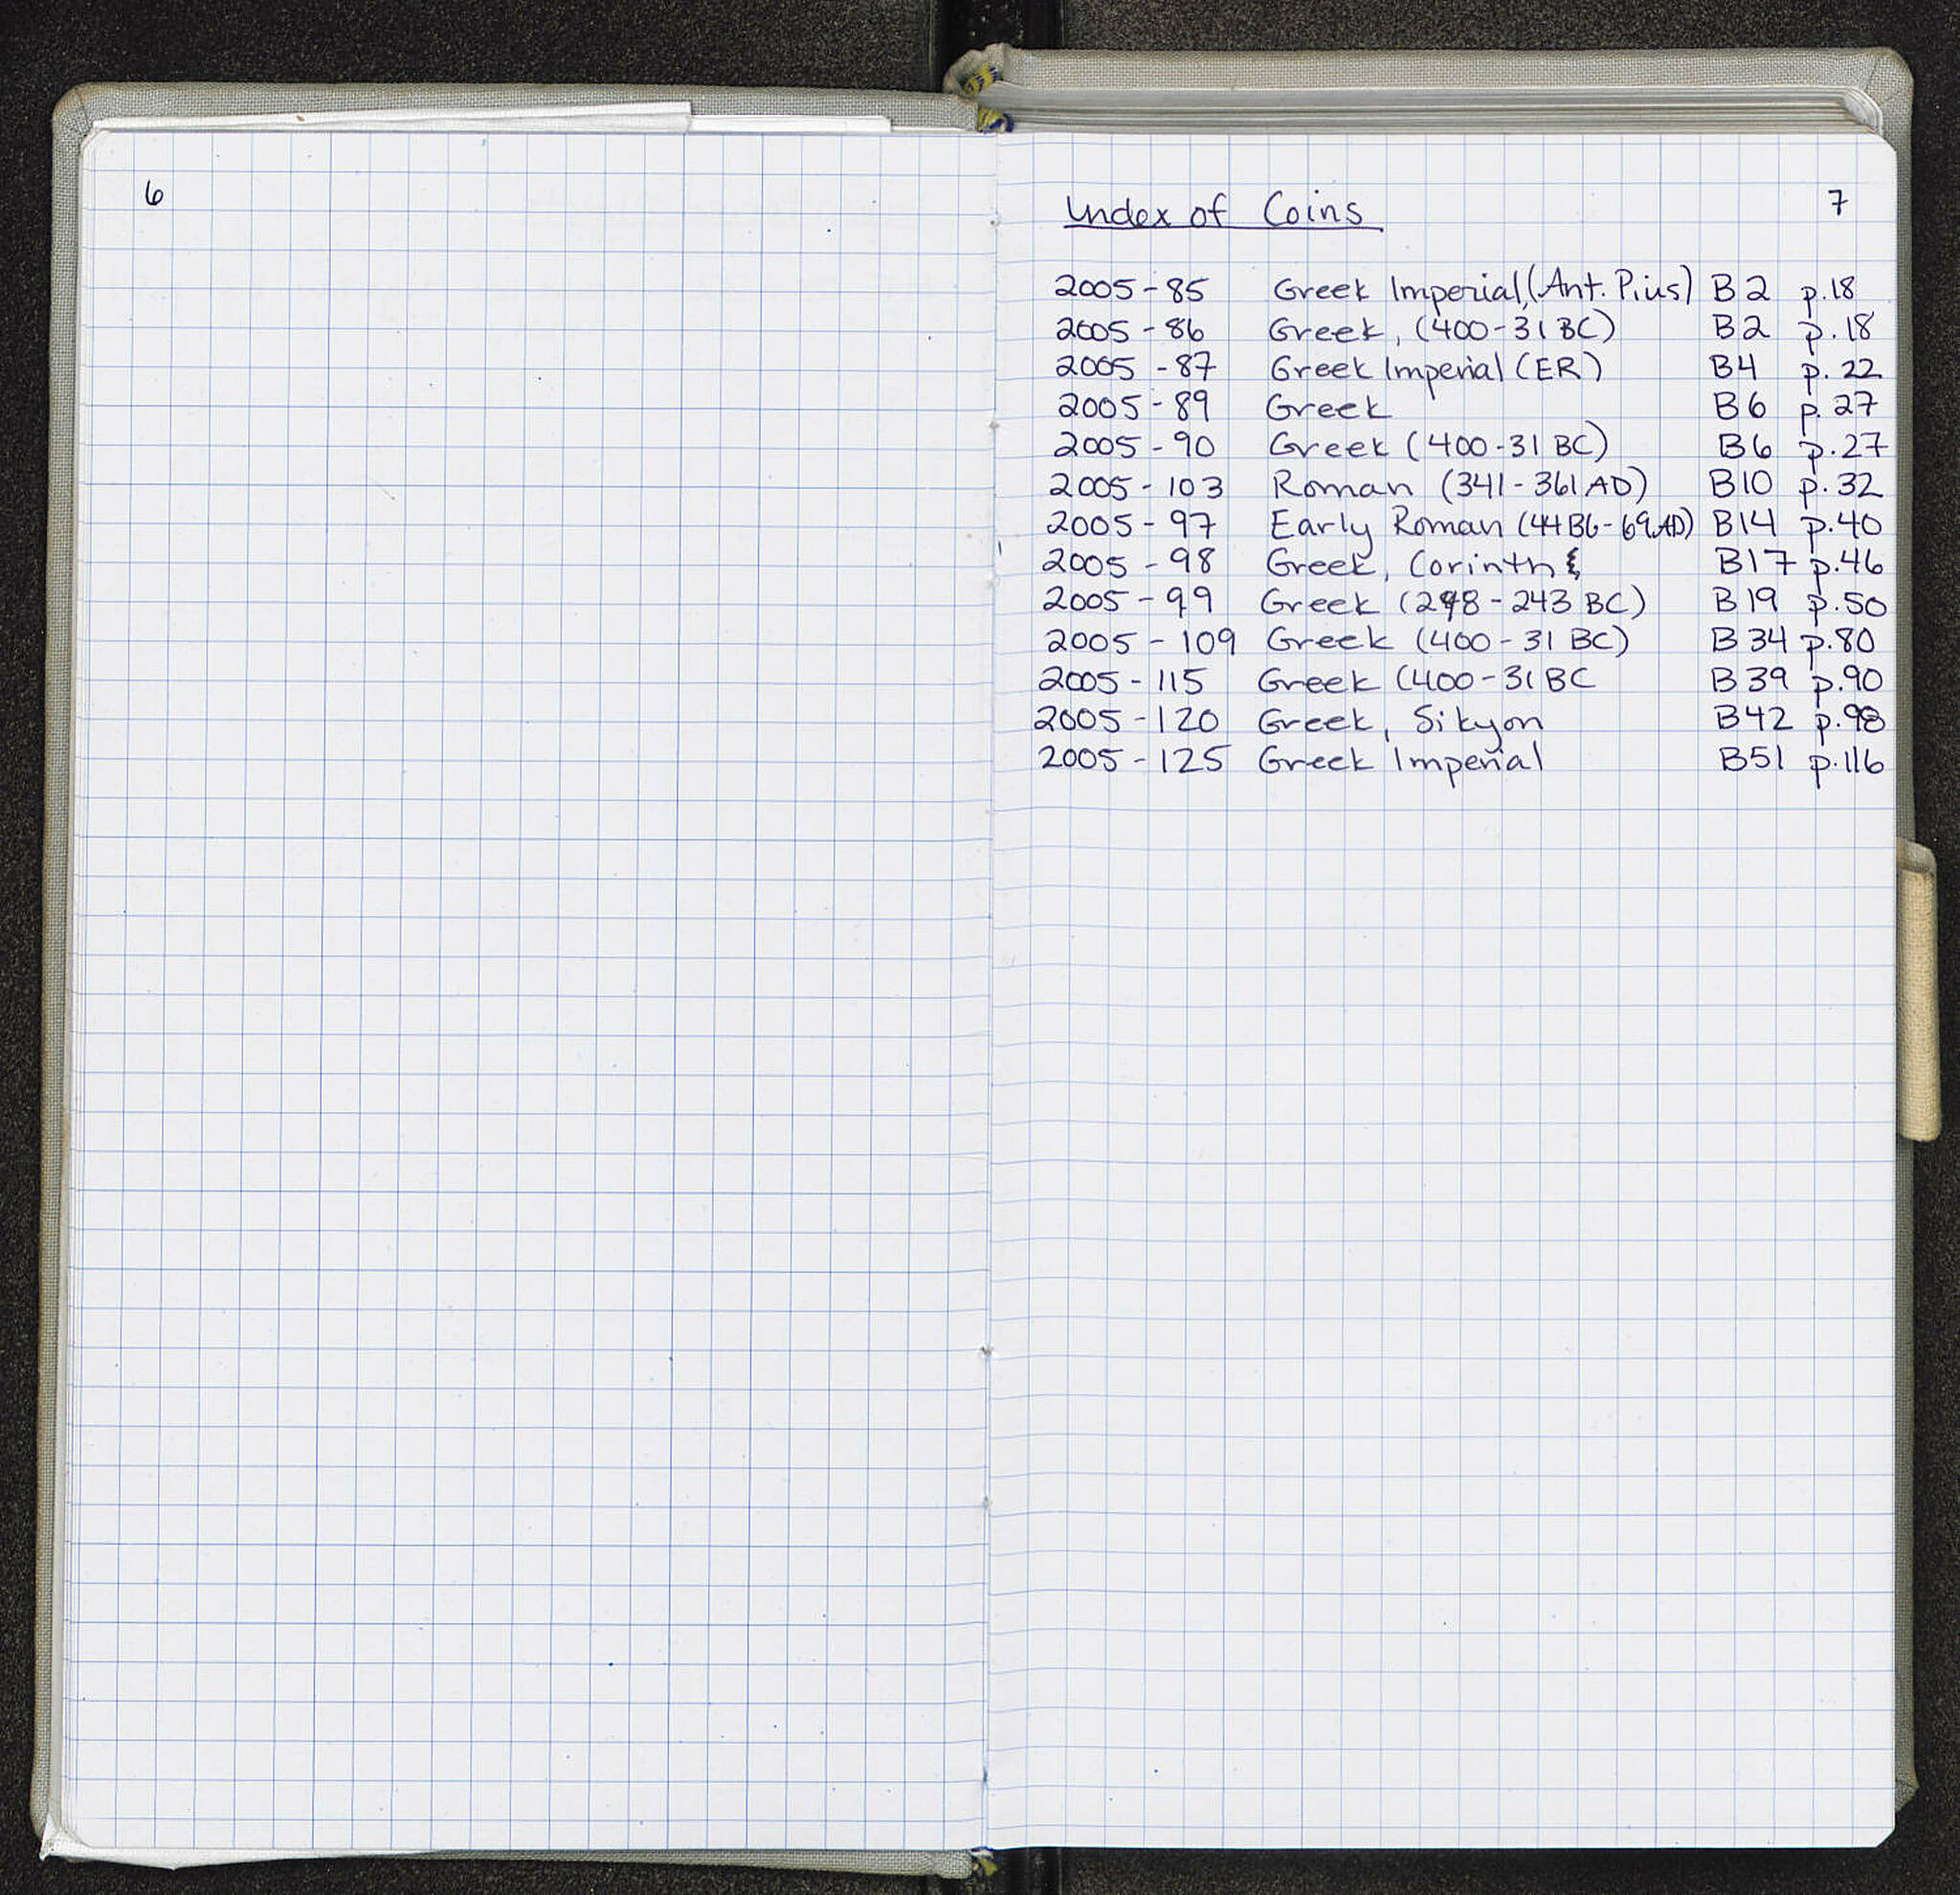 6
Index of Coins 7
2005-85 Greek Imperial, (Ant. Pius) B2 p.18
2005-86 Greek, (400-31 BC) B2 p.18
2005-87 Greek Imperial (ER) B4 p.22
2005-89 Greek B6 p.27
2005-90 Greek (400-31 BC) B6 p.27
2005-103 Roman (341-361 AD) B10 p.32
2005-97 Early Roman (44 BC-69 AD) B14 p.40
2005-98 Greek, Corinth B17 p.46
2005-99 Greek (248-243 BC) B19 p.50
2005-109 Greek (400-31 BC) B34 p.80
2005-115 Greek (400-31 BC B39 p.90
2005-120 Greek, Sikyon B42 p.98
2005-125 Greek Imperial B51 p.116